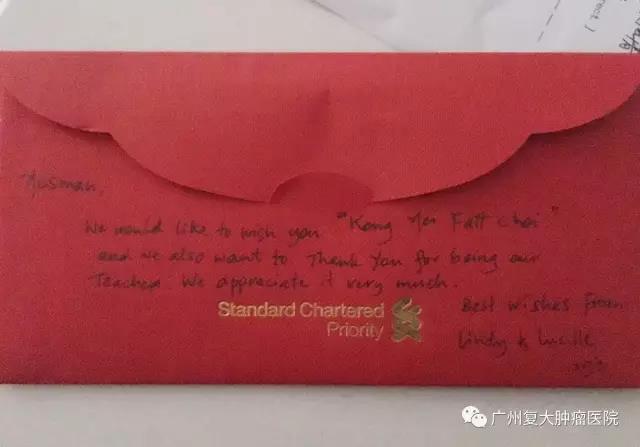 Husman,
We would like to wish you "Kong Hei Fatt Choi"
and we also want to Thank You for being our
Teacher. We appreciate it very much.
Standard Chartered
Priority
Best wishes from
Lindy &
广州复大肿瘤医院